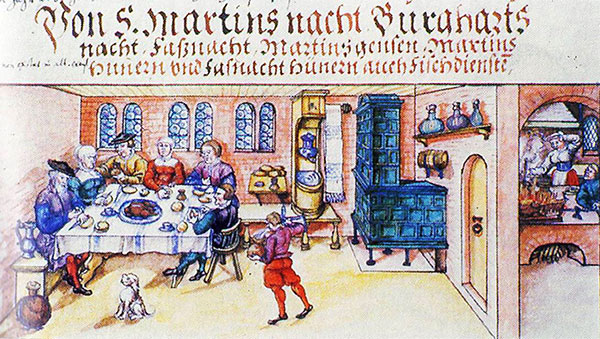 Von S. Martins nacht Burgharts
nacht. Faßnacht. Martins gensen. Martins
Hünern und Fasnacht Hünern auch Fischdiensten,